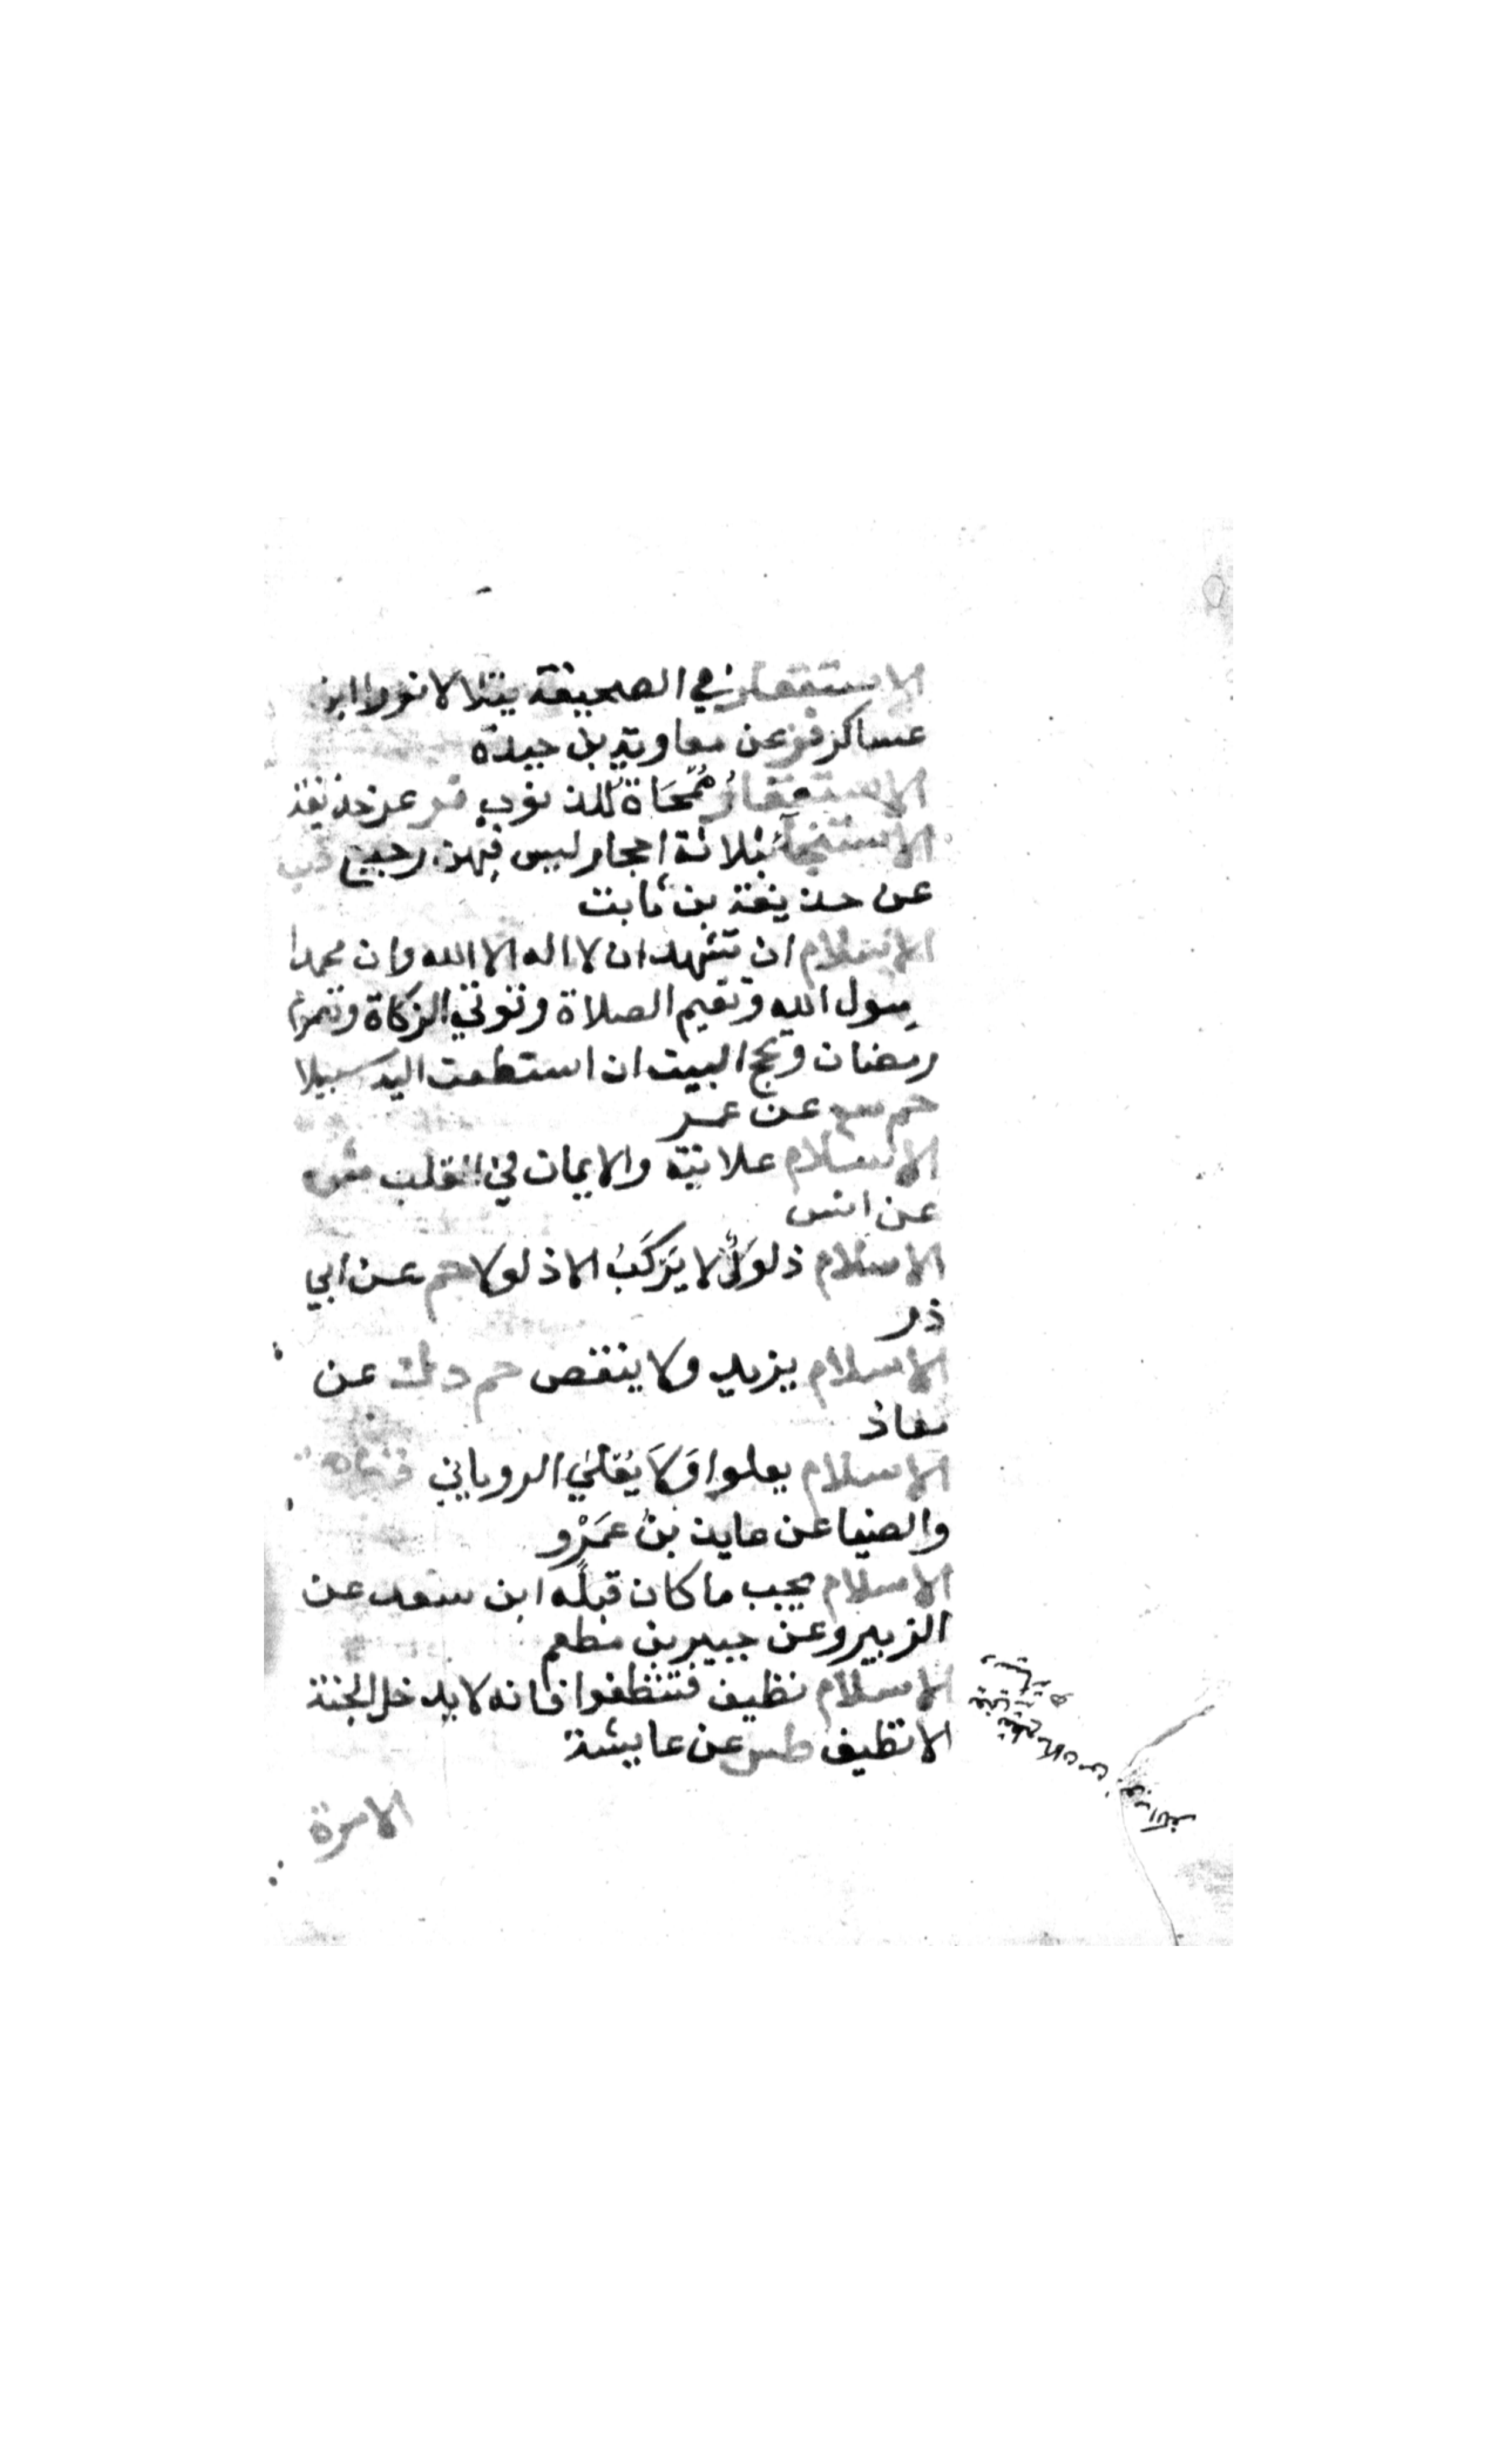 الاستغفار في الصحيفة يتلا لا نورا ابن
عساكر فر عن معاوية بن حيدة
الاستغفار مُمْحَاة للذنوب فر عن حذيفة
الاستنجآ بثلاثة احجار ليس فيهن رجيع طب
عن حذيفة بن ثابت
الاسلام ان تشهد ان لا اله الا الله وان محمدا
رسول الله وتقيم الصلاة وتوتي الزكاة وتصوم
رمضان وتحج البيت ان استطعت اليه سبيلا
حم عن عمر
الاسلام علانية والايمان في القلب ش
عن انس
الاسلام ذلولٌ لا يَركَبُ الا ذلولا حم عن ابي
ذر
الاسلام يزيد ولا ينقص حم د ك عن
معاذ
الاسلام يعلوا وَلَا يُعْلَي الروياني
والضيا عن عايذ بن عَمَرْو
الاسلام يجب ما كان قبله ابن سعد عن
الزبير وعن جبير بن مطعم
الاسلام نظيف فتنظفوا فانه لا يدخل الجنة
الا نظيف طس عن عايشة
الامرة